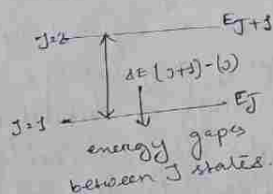 J=2 EJ+1
ΔE (J+1)-(J)
J=1 EJ
energy gapes
between J states.